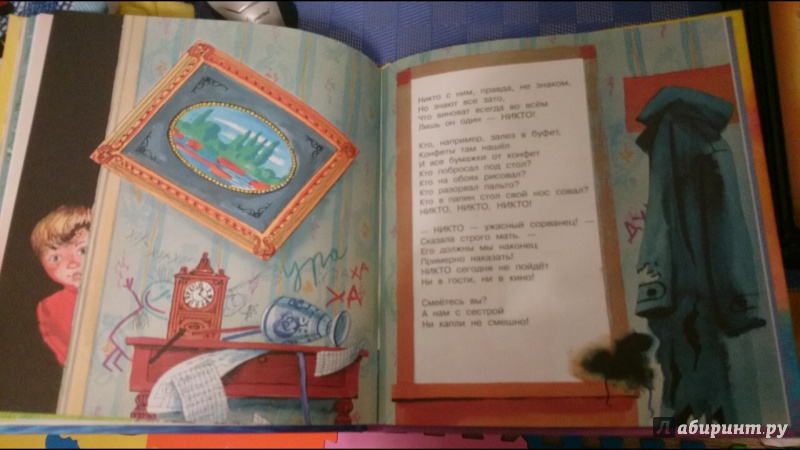 ура
Никто с ним, правда, не знаком,
Но знают все зато,
Что виноват всегда во всём
Лишь он один — НИКТО!
Кто, например, залез в буфет,
Конфеты там нашёл
И все бумажки от конфет
Кто побросал под стол?
Кто на обоях рисовал?
Кто разорвал пальто?
Кто в папин стол свой нос совал?
НИКТО, НИКТО, НИКТО!
— НИКТО — ужасный сорванец! —
Сказала строго мать. —
Его должны мы наконец
Примерно наказать!
НИКТО сегодня не пойдёт
Ни в гости, ни в кино!
Смеётесь вы?
А нам с сестрой
Ни капли не смешно!
Лабиринт.ру